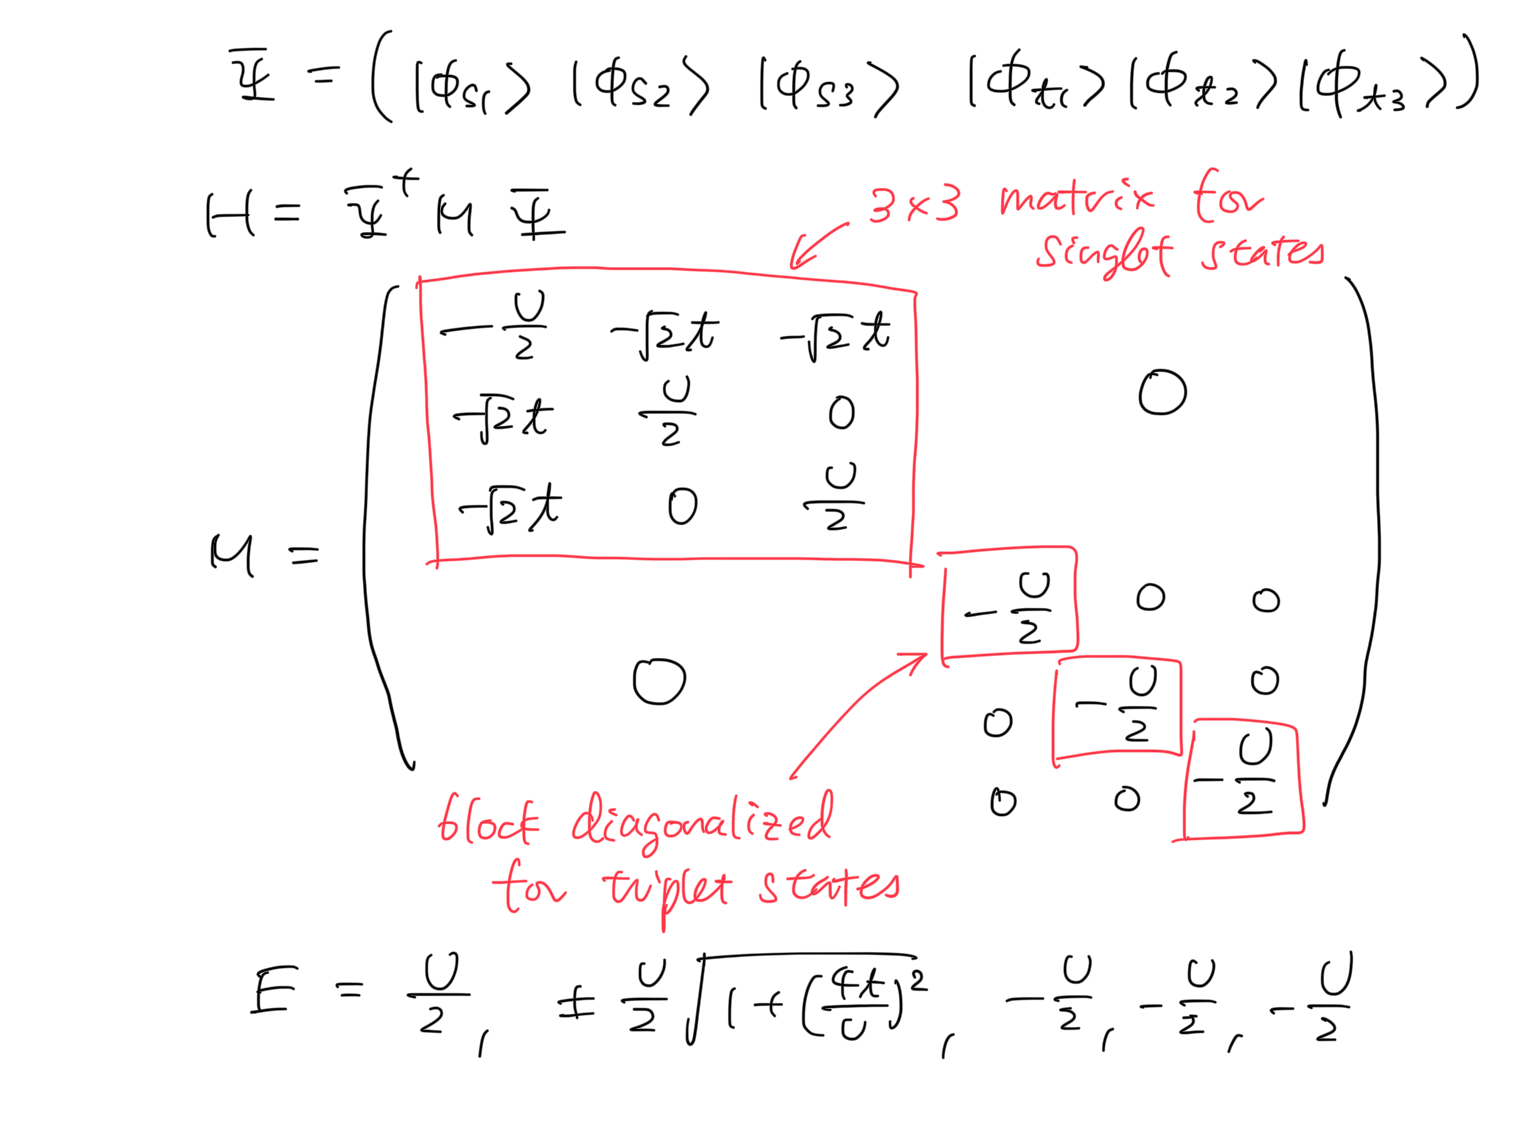 Ψ = ( |ϕs1⟩ |ϕs2⟩ |ϕs3⟩ |ϕt1⟩ |ϕt2⟩ |ϕt3⟩ )
H = Ψ† M Ψ
3×3 matrix for
singlet states
-U/2 -√2t -√2t
-√2t U/2 0
0
-√2t 0 U/2
M =
-U/2 0 0
0
0 -U/2 0
0 0 -U/2
block diagonalized
for triplet states
E = U/2, ± U/2 √(1+(4t/U)²), -U/2, -U/2, -U/2